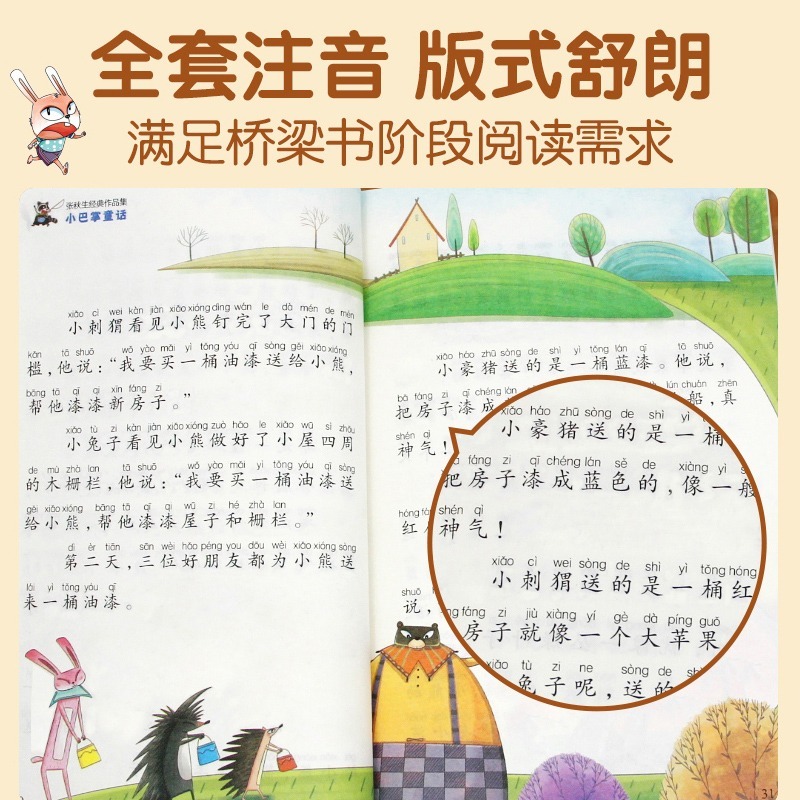 全套注音 版式舒朗
满足桥梁书阶段阅读需求
张秋生经典作品集
小巴掌童话
xiǎo cì wei kàn jiàn xiǎo xióng dìng wán le dà mén de mén
小刺猬看见小熊钉完了大门的门
kǎn tā shuō wǒ yào mǎi yì tǒng yóu qī sòng gěi xiǎo xióng
槛，他说：“我要买一桶油漆送给小熊，
bāng tā qī qi xīn fáng zi
帮他漆漆新房子。”
xiǎo tù zi kàn jiàn xiǎo xióng zuò hǎo le xiǎo wū sì zhōu
小兔子看见小熊做好了小屋四周
de mù zhà lan tā shuō wǒ yào mǎi yì tǒng yóu qī sòng
的木栅栏，他说：“我要买一桶油漆送
gěi xiǎo xióng bāng tā qī qi wū zi hé zhà lan
给小熊，帮他漆漆屋子和栅栏。”
dì èr tiān sān wèi hǎo péng you dōu wèi xiǎo xióng sòng
第二天，三位好朋友都为小熊送
lái yì tǒng yóu qī
来一桶油漆。
xiǎo háo zhū sòng de shì yì tǒng lán qī tā shuō
小豪猪送的是一桶蓝漆。他说，
bǎ fáng zi qī chéng lán lún chuán zhēn
把房子漆成 船，真
shén qì
神气！
红
shuō
说，
xiǎo háo zhū sòng de shì yì tǒng
小豪猪送的是一桶
fáng zi qī chéng lán sè de xiàng yì
把房子漆成蓝色的，像一艘
shén qì
神气！
xiǎo cì wei sòng de shì yì tǒng hóng
小刺猬送的是一桶红
fáng zi jiù xiàng yí gè dà píng guǒ
房子就像一个大苹果
xiǎo tù zi ne sòng de shì
兔子呢，送的
31